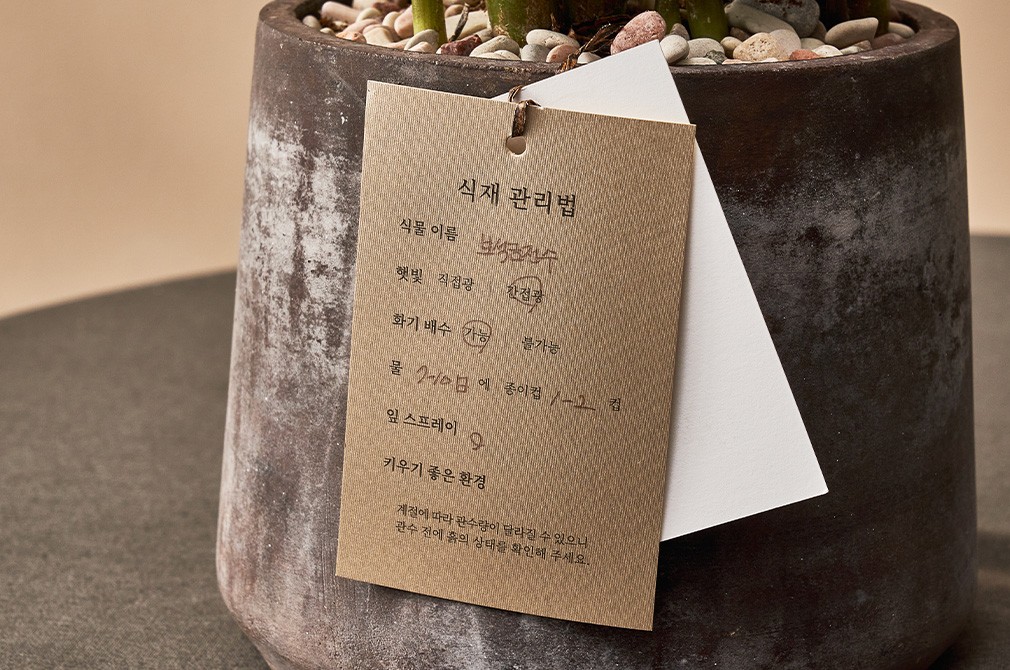 식재 관리법
식물 이름 보석금전수
햇빛 직접광 간접광
화기 배수 가능 불가능
물 7-10日 에 종이컵 1-2 컵
잎 스프레이
키우기 좋은 환경
계절에 따라 관수량이 달라질 수 있으니
관수 전에 흙의 상태를 확인해 주세요.